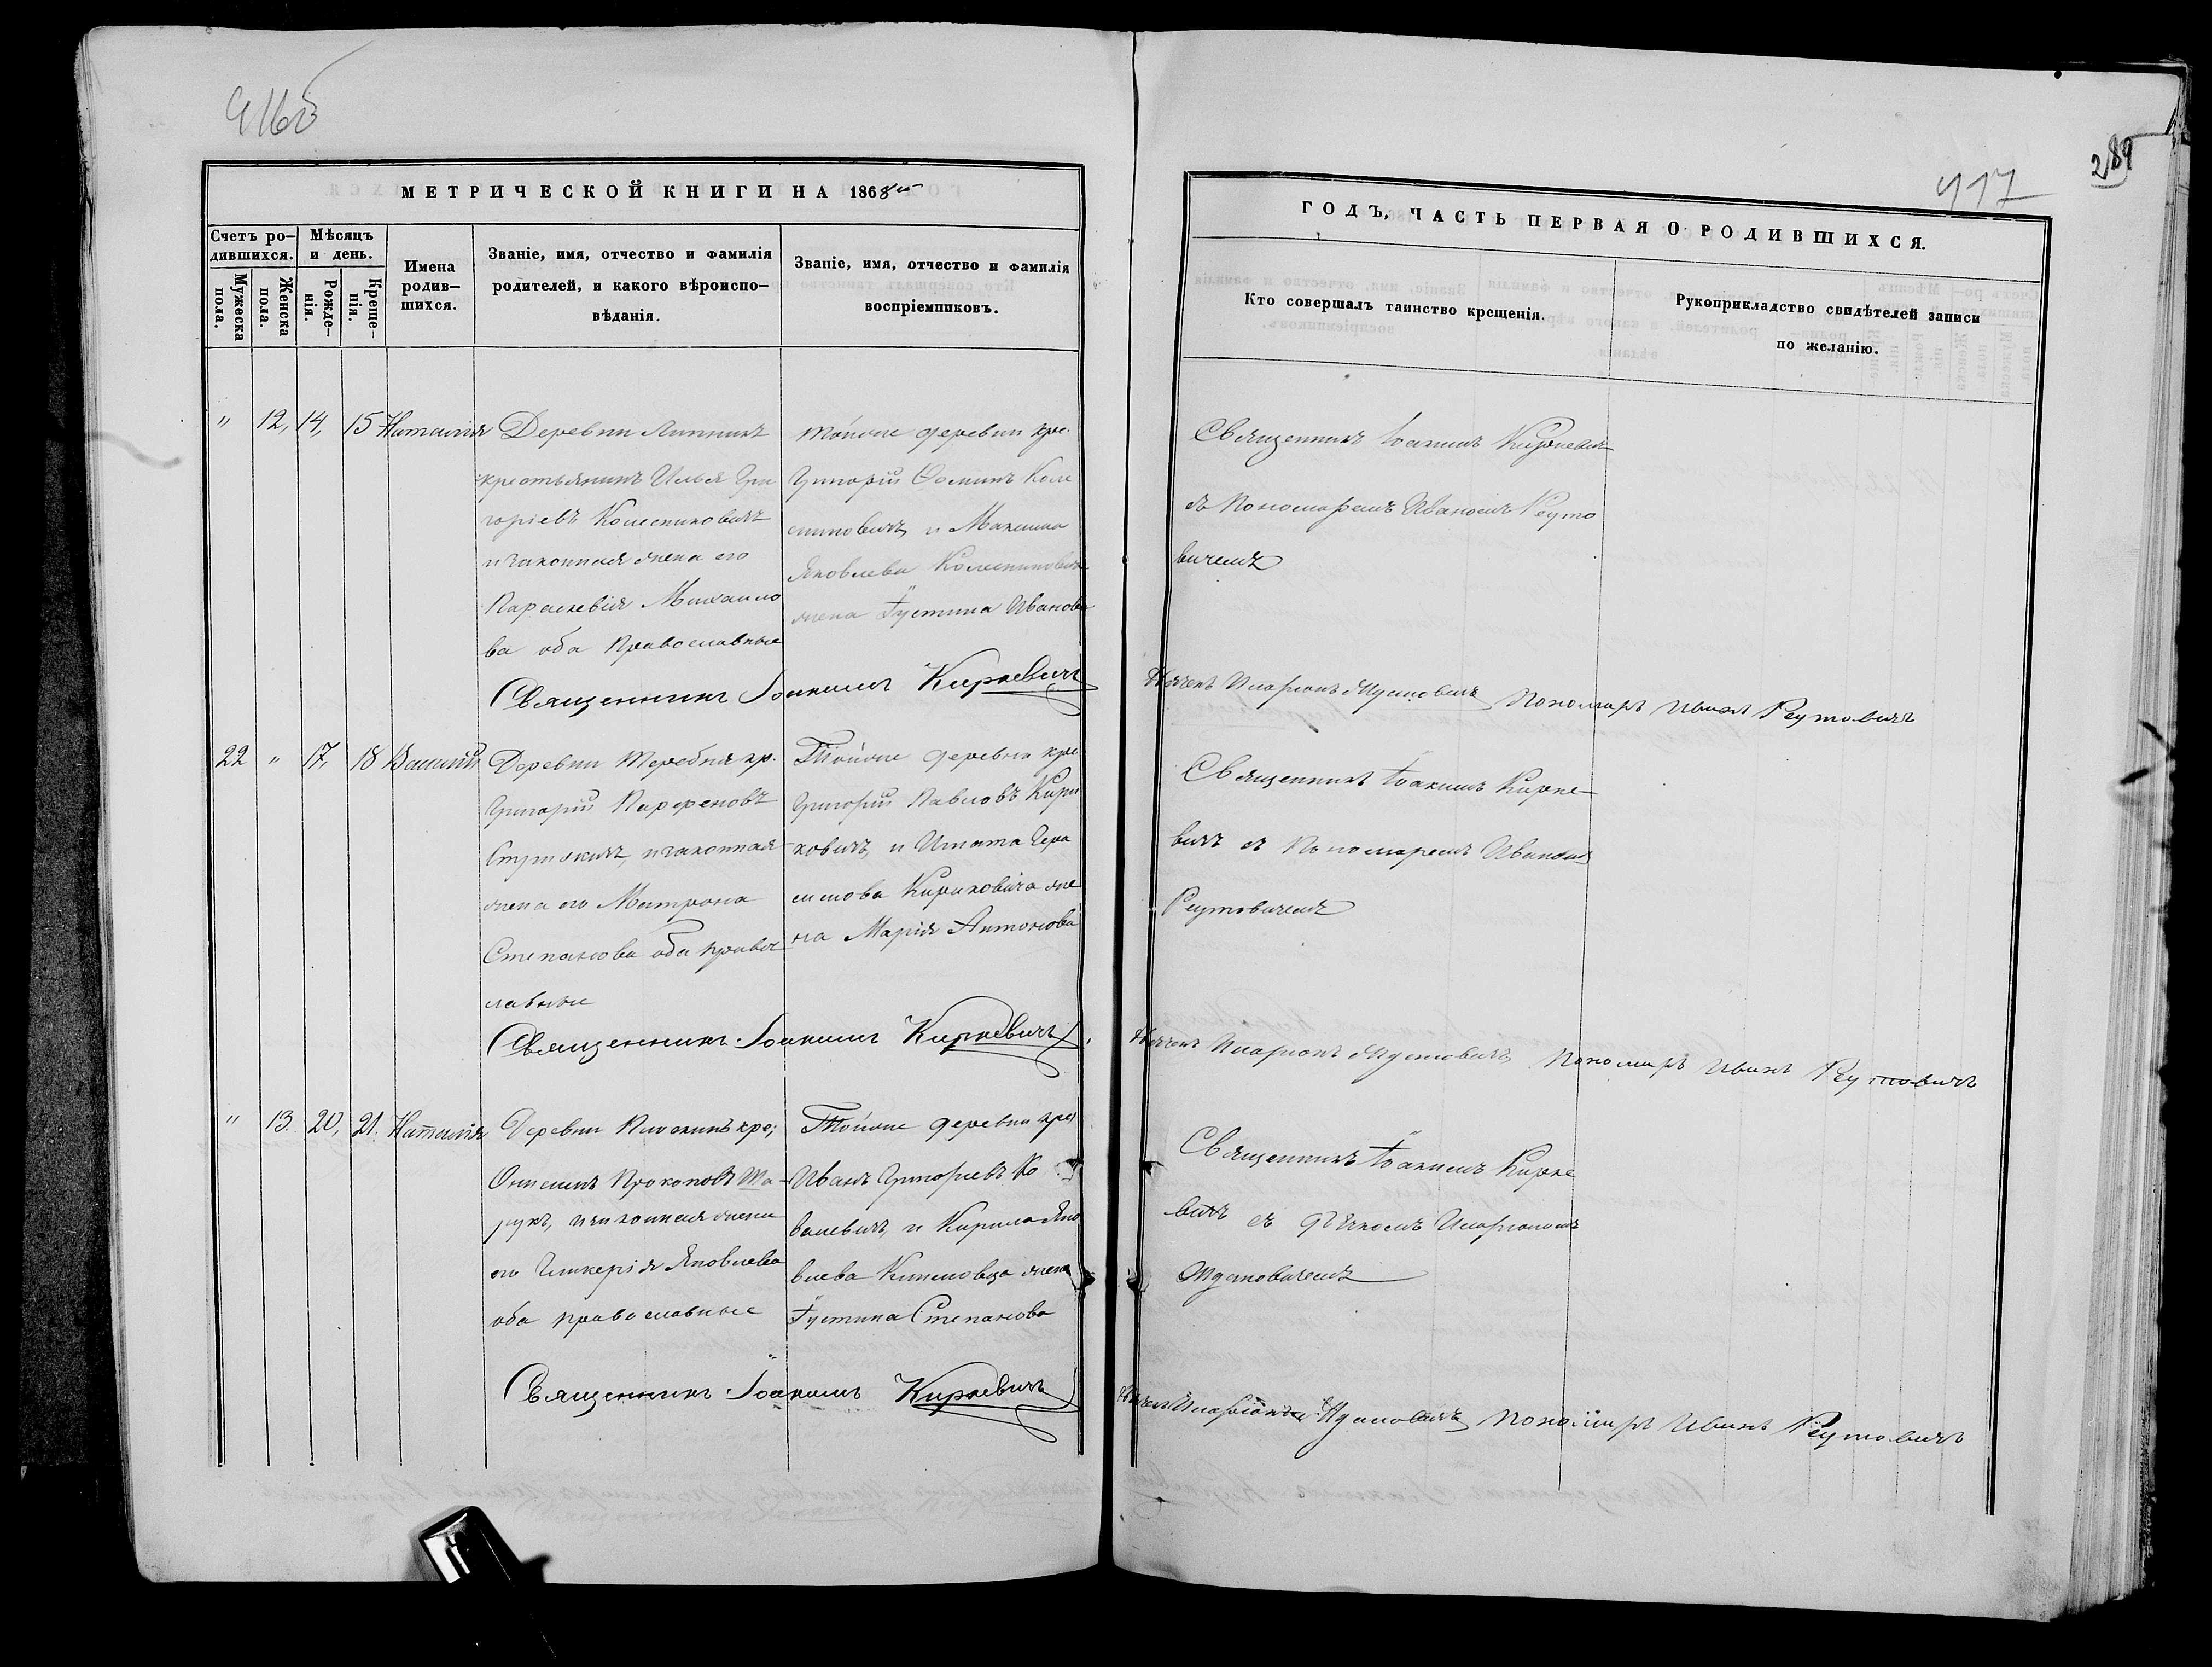 916б
МЕТРИЧЕСКОЙ КНИГИ НА 1868й
Счетъ ро-
дившихся.
Мѣсяцъ
и день.
Мужеска
пола.
Женска
пола.
Рожде-
нія.
Креще-
нія.
Имена
родив-
шихся.
Званіе, имя, отчество и фамилія
родителей, и какого вѣроиспо-
вѣданія.
Званіе, имя, отчество и фамилія
воспріемниковъ.
" 12, 14, 15 Наталия
Деревни Липникъ
крестьянинъ Илья Гри
горіевъ Колесниковичъ
и законная жена его
Параскевія Михаило
ва оба Православные
тойже деревни кре.
Григорій Фоминъ Коле
сниковичъ, и Максима
Яковлева Колесникович
жена Іустина Иванова
Священникъ Іоакимъ Кирневичъ
22 " 17, 18 Василій
Деревни Теребня кр.
Григорій Парфеновъ
законная
жена его Матрона
Степанова оба право
славные
Тойже деревни кре
Григорій Павловъ Кири
ковичъ, и Игната Гера
симова Кириковича же
на Марія Антонова
Священникъ Іоакимъ Кирневичъ
" 13. 20, 21. Наталія
Деревни кре;
Онисимъ Прокоповъ Ша-
рукъ, и законная жена
его Гликерія Яковлева
оба православные
Тойже деревни кре
Иванъ Григорьевъ Ко
валевичъ, и Кирила Яко
влева жена
Іустина Степанова
Священникъ Іоакимъ Кирневичъ
917
289
ГОДЪ, ЧАСТЬ ПЕРВАЯ О РОДИВШИХСЯ.
Кто совершалъ таинство крещенія.
Рукоприкладство свидѣтелей записи
по желанію.
Священникъ Іоакимъ Кирневич
съ Пономаремъ Иваномъ Реуто
вичемъ
Дьячекъ Иларіонъ Пономарь Иванъ Реутовичъ
Священникъ Іоакимъ Кирне-
вичъ съ Пономаремъ Иваномъ
Реутовичемъ
Дьячекъ Иларіонъ Пономарь Иванъ Реутовичъ
Священникъ Іоакимъ Кирне
вичъ съ дьячкомъ Иларіономъ
Дьячекъ Иларіонъ Пономарь Иванъ Реутовичъ